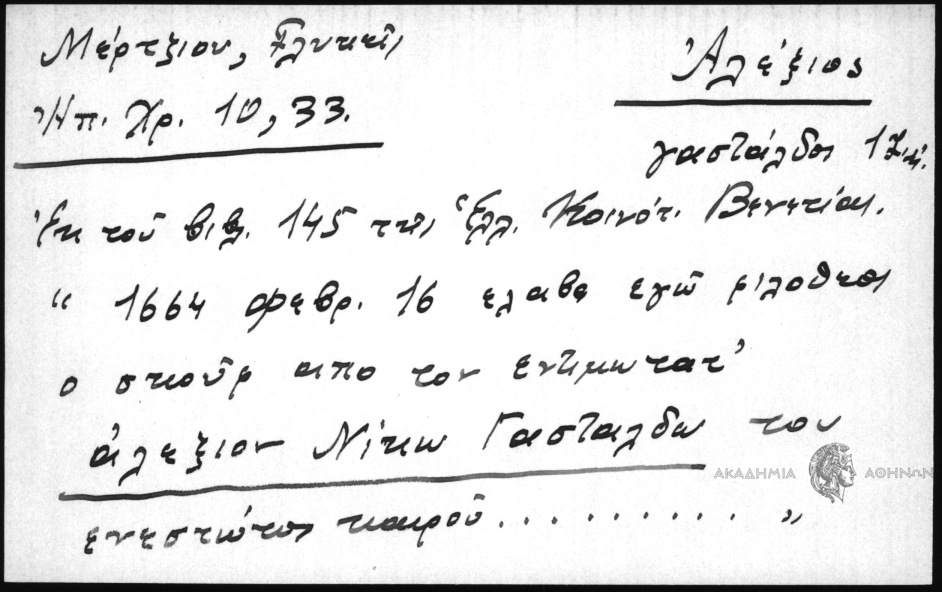 Μέρτζιου,
Ἀλέξιος
Ἠπ. Χρ. 10, 33.
γασταλδος
Ἐκ τοῦ βιβλ. 145 της Ἑλλ. Κοινότ. Βενετίας.
“ 1664 Φεβρ. 16 ελαβα εγῶ φιλοθεος
ο σκοῦρ απο τον εντιμωτατ'
ἀλεξιον Νίκω Γασταλδω του
ενεστῶτος καιροῦ.......... ”
ΑΚΑΔΗΜΙΑ ΑΘΗΝΩΝ